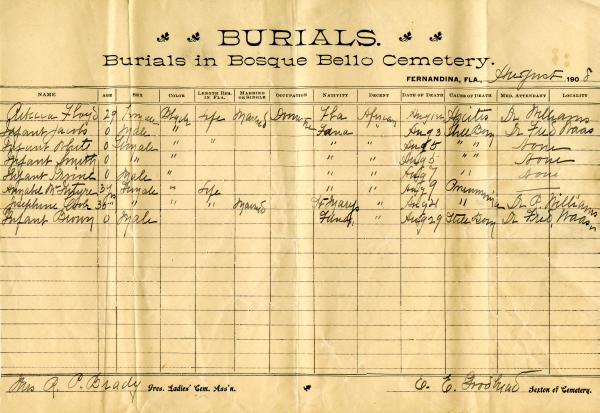 BURIALS.
Burials in Bosque Bello Cemetery.
FERNANDINA, FLA., August 1908
NAME AGE SEX COLOR LENGTH RES. IN FLA. MARRIED OR SINGLE OCCUPATION NATIVITY DECENT DATE OF DEATH CAUSE OF DEATH MED. ATTENDANT LOCALITY
Rebecca Floyd 29 Female Black Life Married Fla African Dr Williams
Infant Jacobs 0 Male " " Aug 3 Still Born Dr Fred Waas
Infant White 0 Female " " Aug 5 " " None
Infant Smith 0 " " " Aug 5 " " None
Infant 0 Male " " Aug 7 " None
Annabel McIntyre Female " Life " Aug 9
Josephine Cook 36 " " " Married St Marys " Aug 21 " Dr P. Williams
Infant Brown 0 Male " Aug 29 Still Born Dr Fred Waas
Mrs R. P. Brady Pres. Ladies' Cem. Ass'n. Sexton of Cemetery.